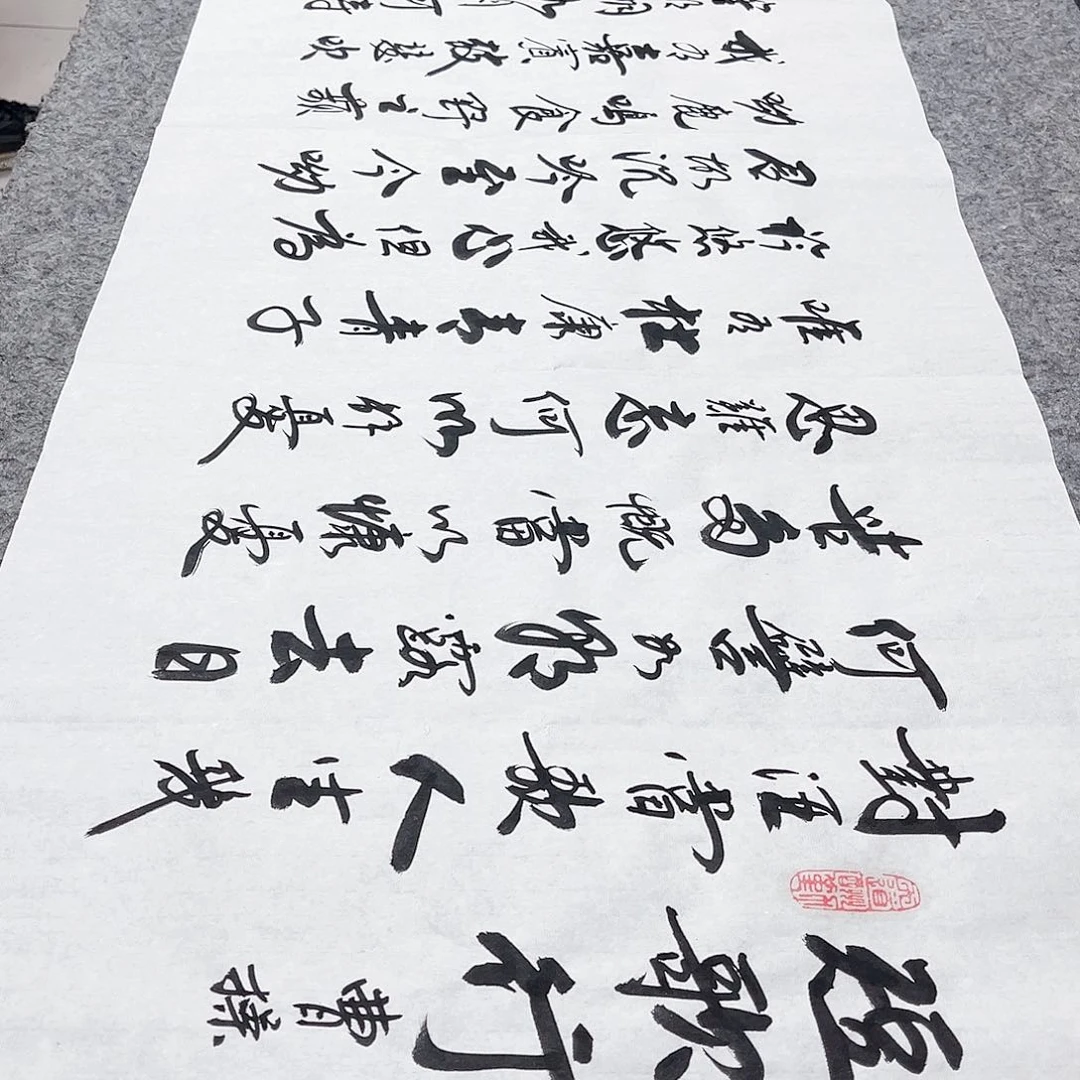 短歌行 曹操
對酒當歌人生幾
何譬如朝露去日
苦多慨當以慷憂
思難忘何以解憂
唯有杜康青青子
衿悠悠我心但為
君故沉吟至今呦
呦鹿鳴食野之蘋
我有嘉賓鼓瑟吹
笙明明如月何時